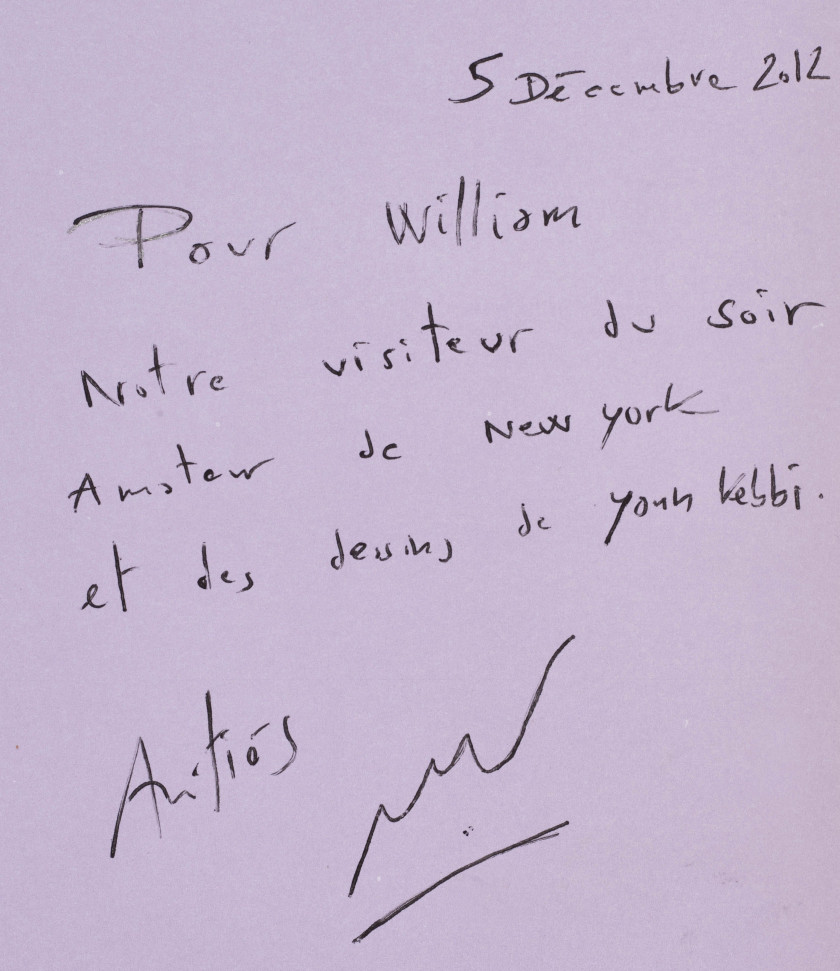 5 Décembre 2012
Pour William
Notre visiteur du soir
Amateur de New york
et des dessins de younn kebbi.